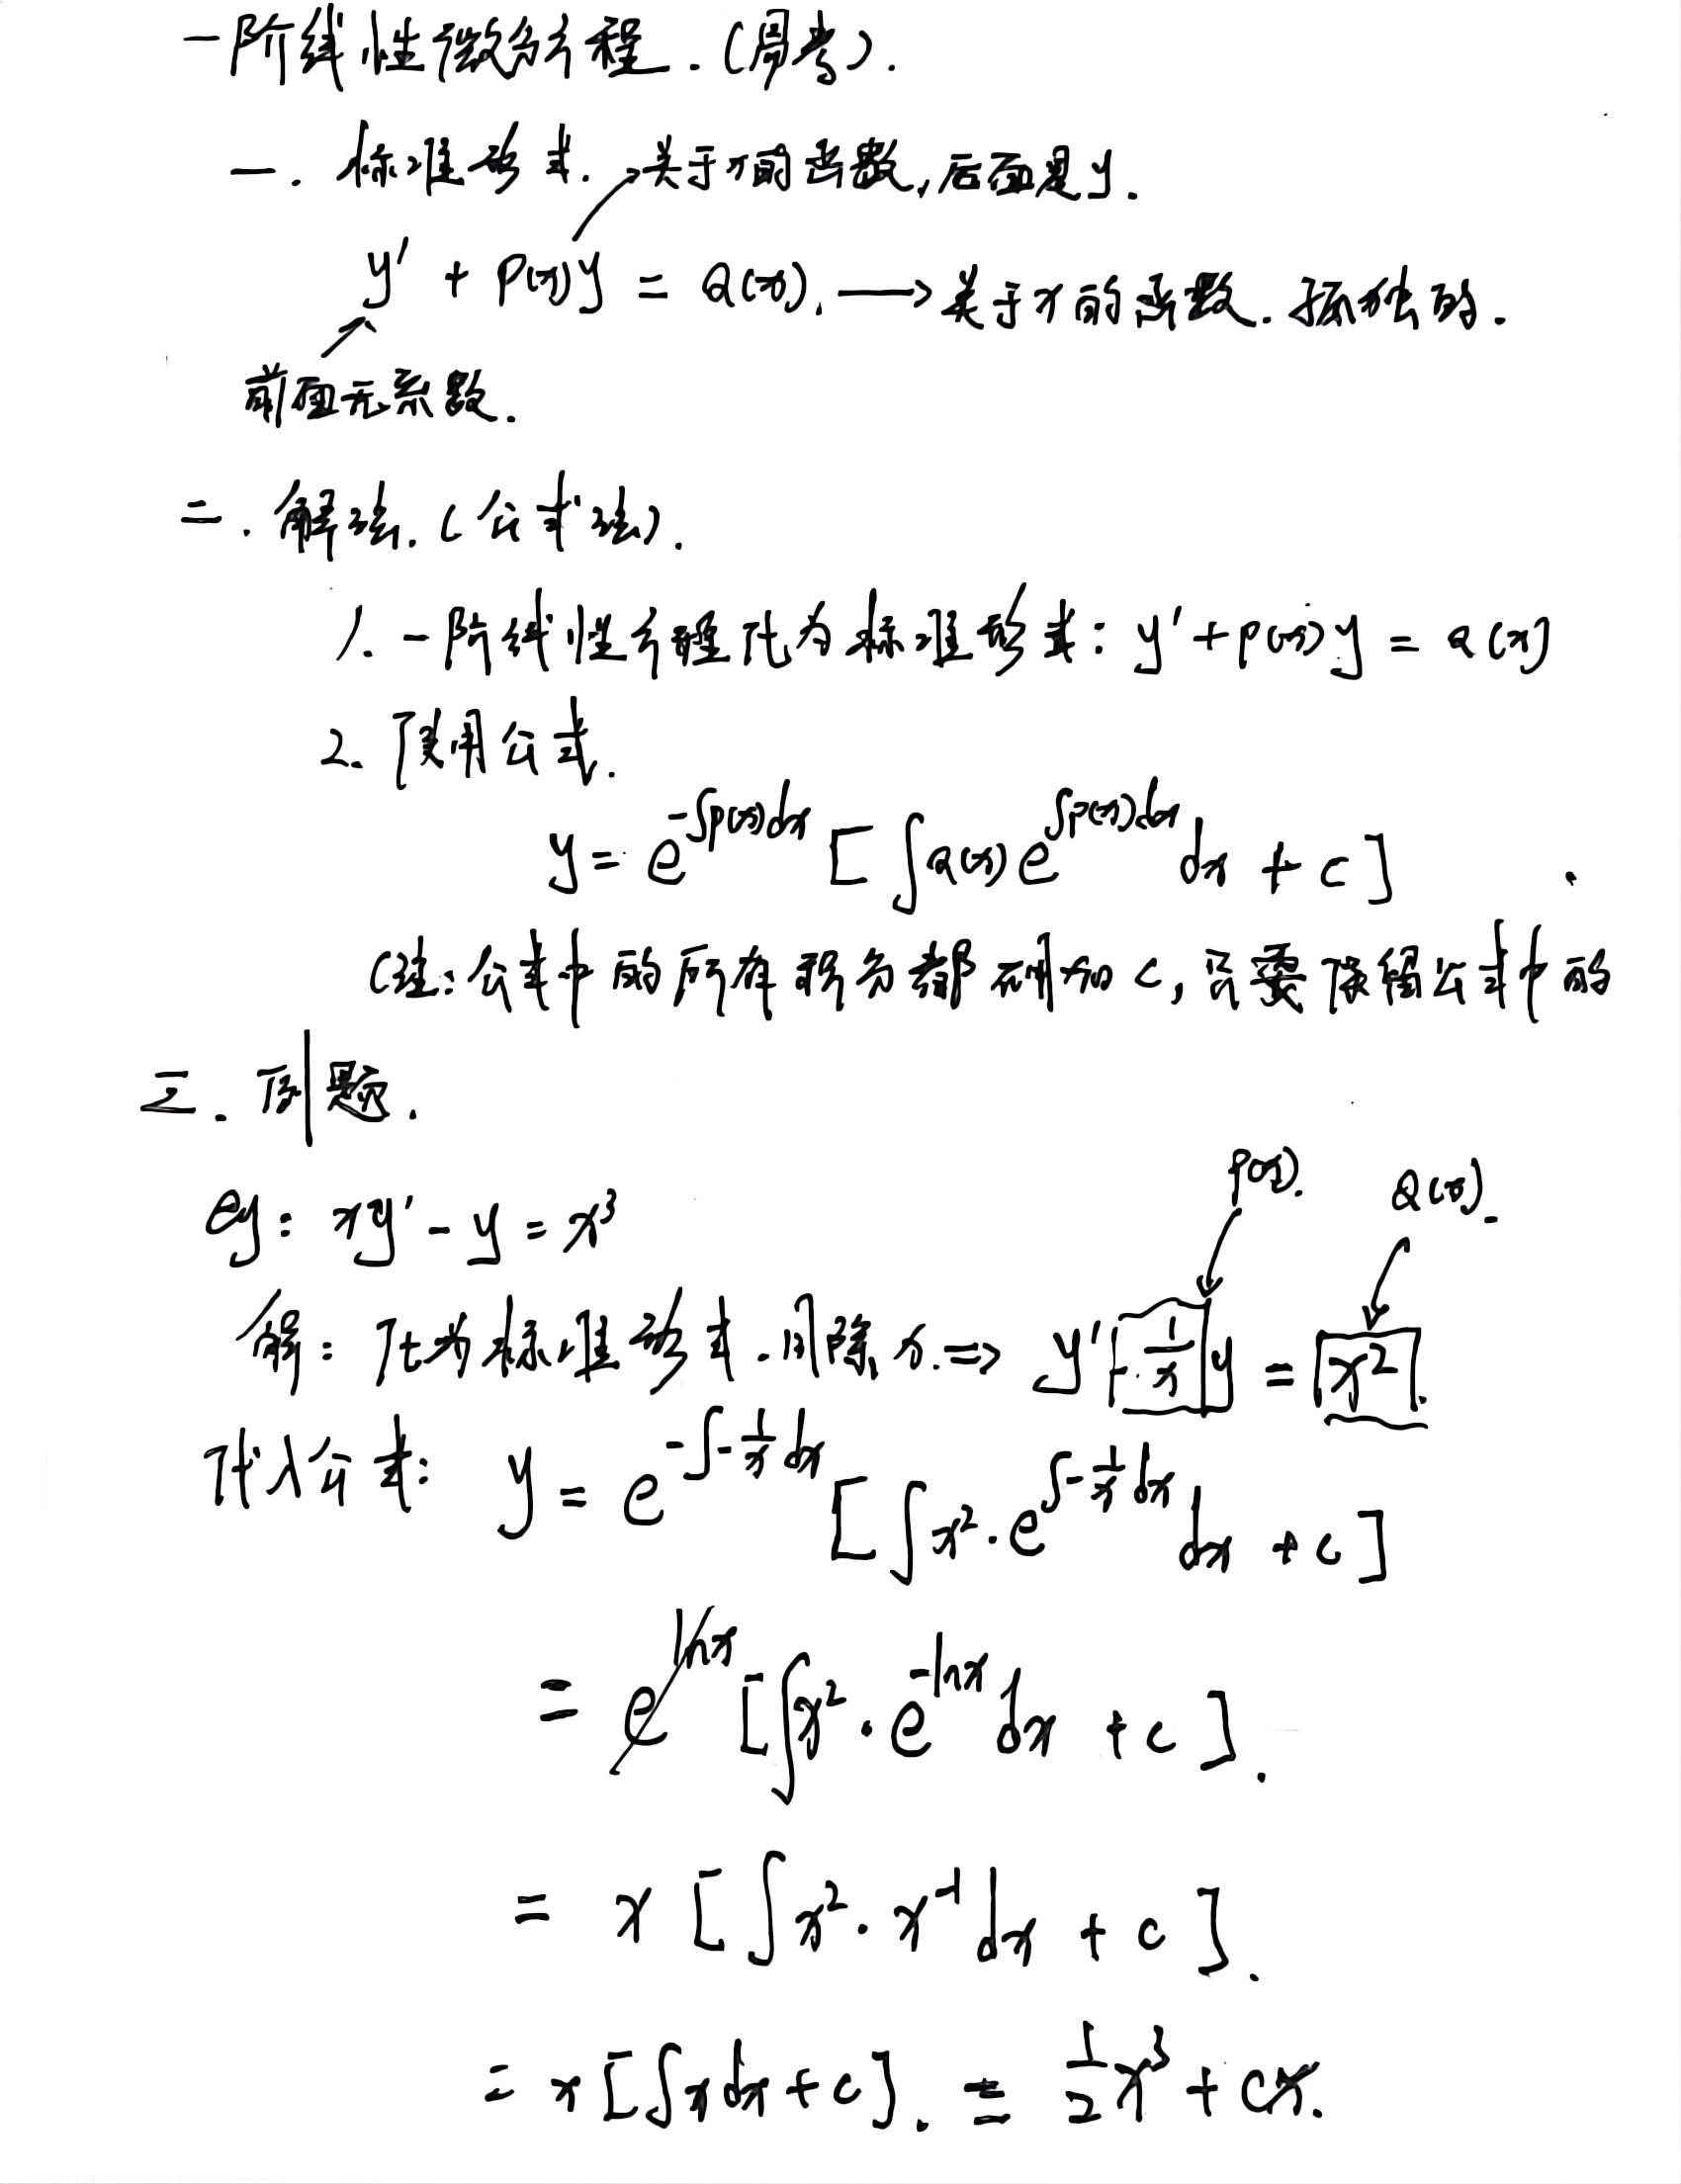 一阶线性微分方程.(常考).
一. 标准形式. →关于x的函数,后面是y.
y' + P(x)y = Q(x). ⟶关于x的函数.孤独的.
前面无系数.
二.解法.(公式法).
1. 一阶线性方程化为标准形式: y'+P(x)y = Q(x)
2. 使用公式.
y = e^{-∫P(x)dx} [ ∫Q(x) e^{∫P(x)dx} dx + c ]
(注:公式中的所有积分都不用加c,只需保留公式中的
三.例题.
P(x). Q(x).
eg: xy' - y = x³
解: 化为标准形式.同除x.=> y' - 1/x y = x².
代入公式: y = e^{-∫-1/x dx} [ ∫x²·e^{∫-1/x dx} dx + c ]
= e^{lnx} [∫x²·e^{-lnx} dx + c ].
= x [ ∫x²·x⁻¹ dx + c ].
= x[∫xdx+c]. = 1/2 x³ + cx.